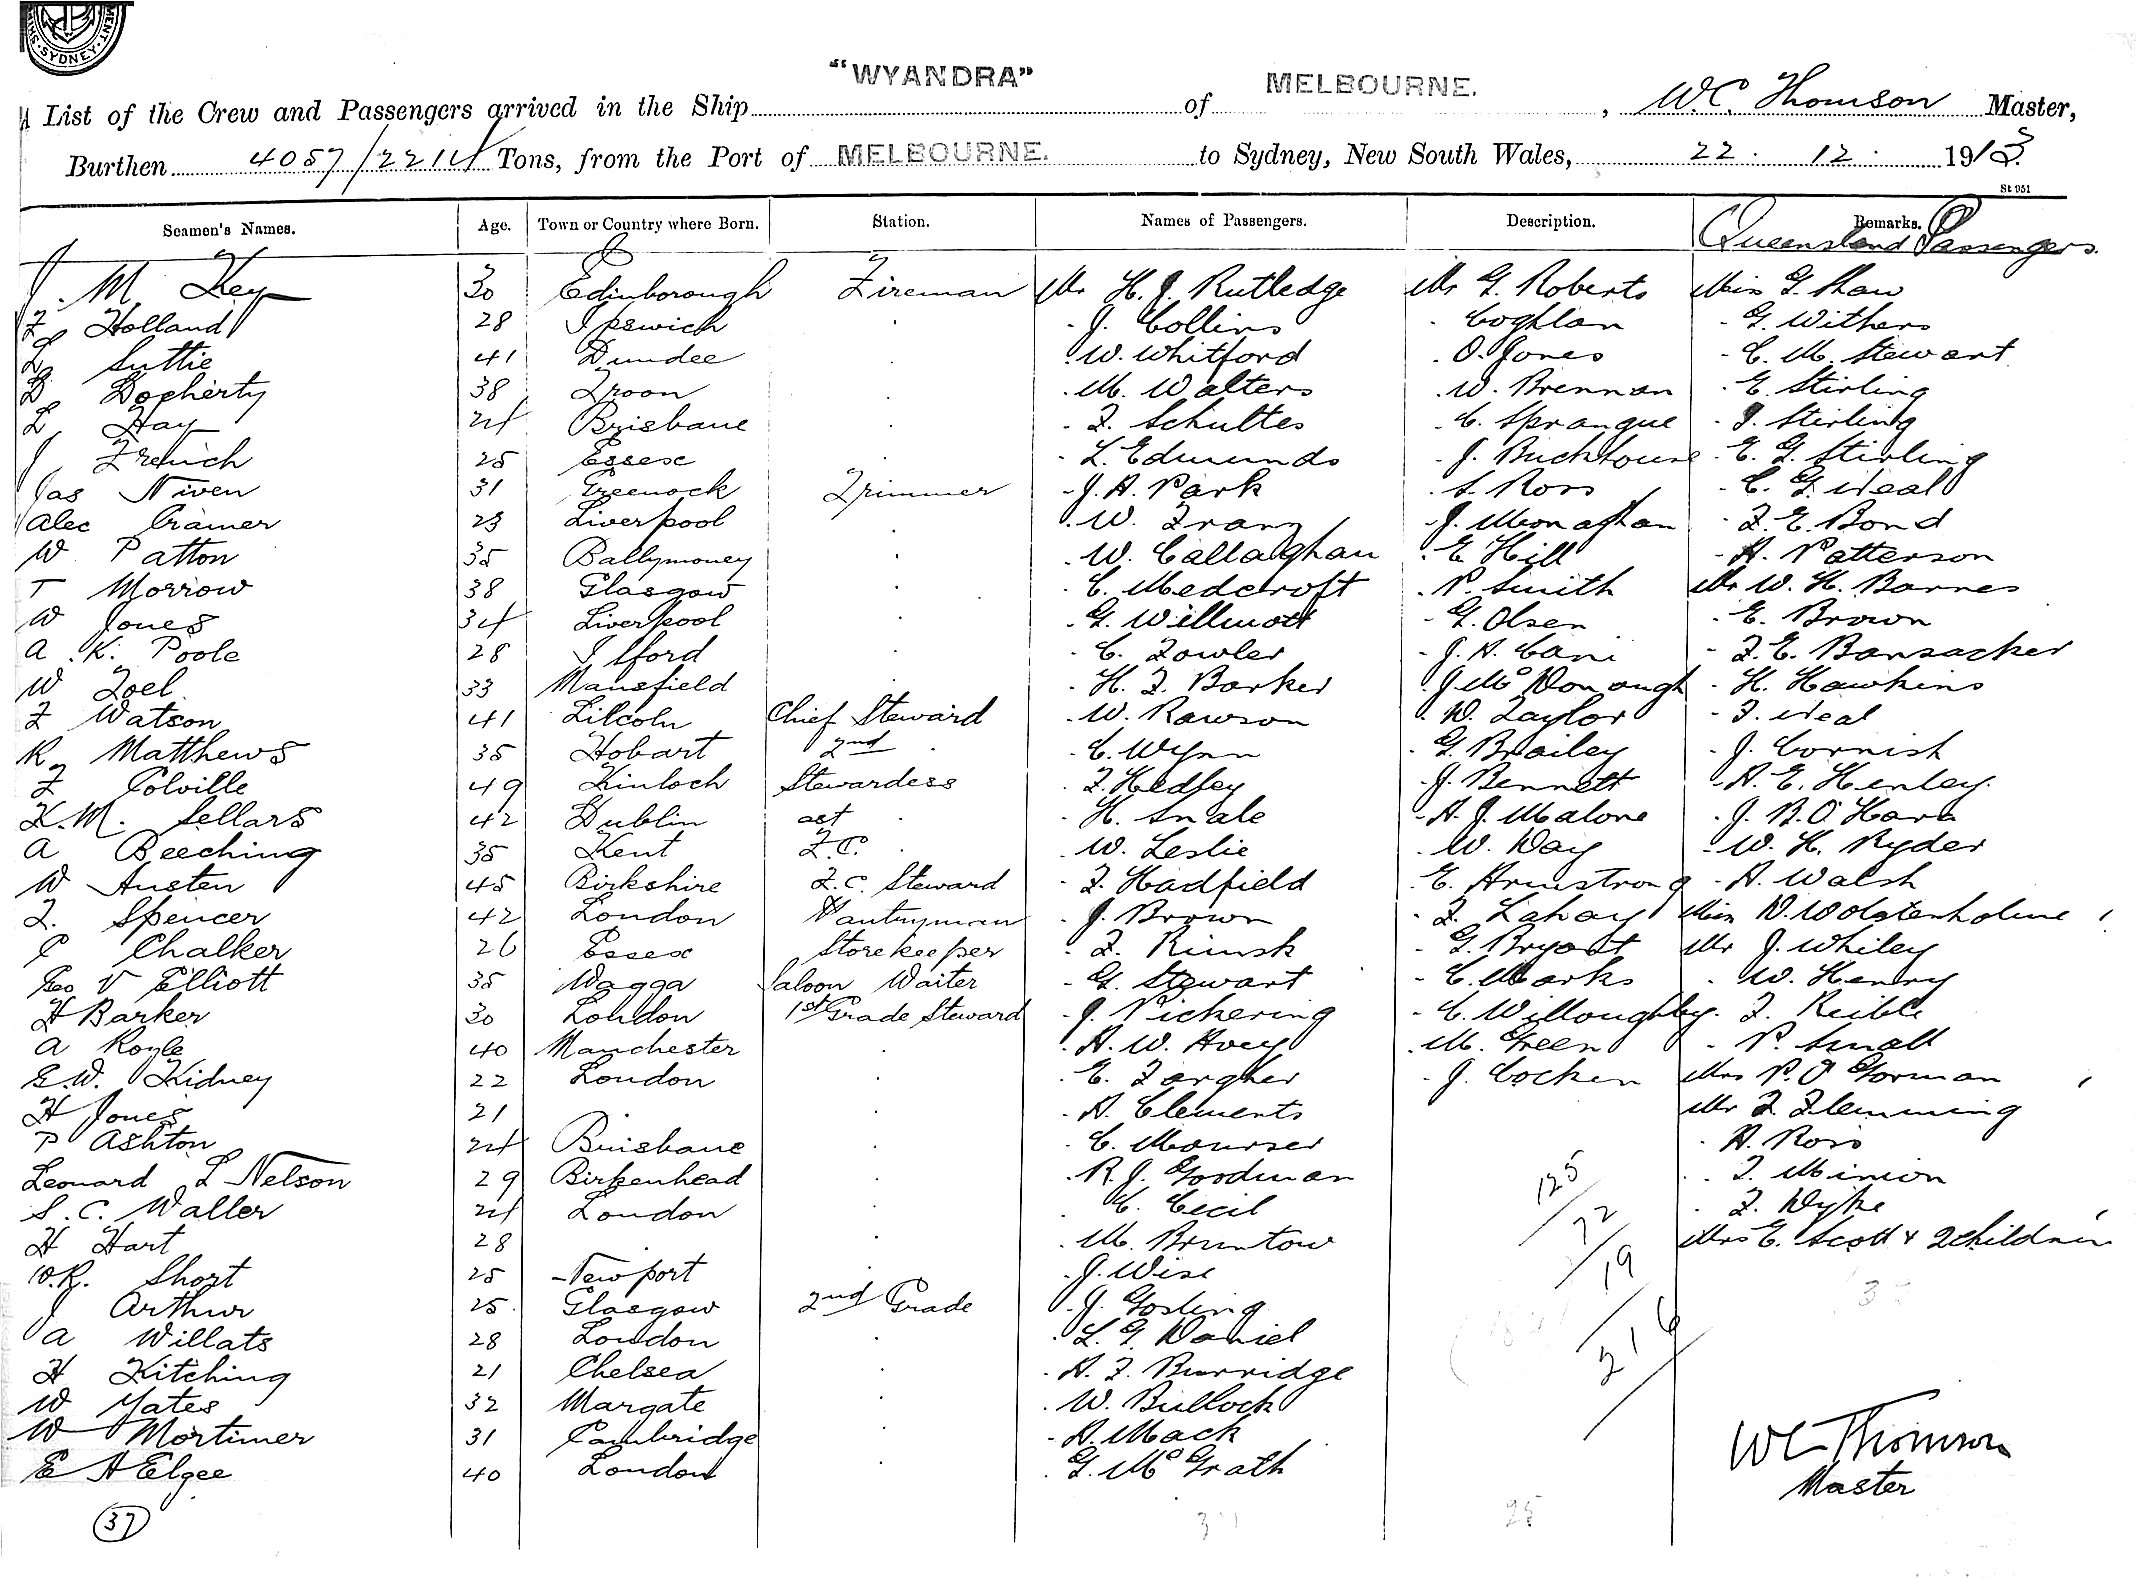 SYDNEY
"WYANDRA" MELBOURNE.
A List of the Crew and Passengers arrived in the Ship of , W.C. Thomson Master,
Burthen 4057/2214 Tons, from the Port of MELBOURNE. to Sydney, New South Wales, 22. 12. 1913.
St 951
Seamen's Names. Age. Town or Country where Born. Station. Names of Passengers. Description. Remarks.
Queensland Passengers.
J. M. Key 30 Edinborough Fireman Mr H. J. Rutledge Mr G. Roberts Miss G. Shaw
F Holland 28 Ipswich . - J. Collins - Coghlan - G. Withers
L Suttie 41 Dundee . - W. Whitford - O. Jones - C. M. Stewart
D Docherty 38 Troon . - M. Walters - W. Brennan - E. Stirling
L Hay 24 Brisbane . - F. Schultes - C. Sprangue - J. Stirling
J French 25 Essex . - L. Edmunds - J. Buckhouse - E. G. Stirling
Jas Niven 31 Greenock Trimmer - J. A. Park - S. Ross - C. G. Neal
Alec Cramer 23 Liverpool . - W. - J. Monaghan - F. E. Bond
W Patton 35 Ballymoney . - W. Callaghan - E Hill - A. Patterson
T Morrow 38 Glasgow . - C. Medcroft - P. Smith Mr W. H. Barnes
W Jones 34 Liverpool . - G. Willmott - G. Olsen - E. Brown
A. K. Poole 28 Ilford . - C. Fowler - J. A. Cani - F. E. Bansacker
W Joel 33 Mansfield . - H. F. Barker - J McDonough - H. Hawkins
F Watson 41 Lilcoln Chief Steward - W. Rawson - W. Taylor - F. Neal
R Matthews 35 Hobart 2nd . - C. Wynn - G. Brailey - J. Cornish
F Colville 49 Kinloch Stewardess - F. Hedley - J. Bennett - A. E. Henley.
K. M. Sellars 42 Dublin asst . - H. Snale - A. J. Malone - J. B. O'Hara
A Beeching 35 Kent F.C. . - W. Leslie - W. Day - W. H. Ryder
W Austen 45 Birkshire F.C. Steward - F. Hadfield - E. Armstrong - A. Walsh
F. Spencer 42 London Pantryman - J. Brown - F. Lahay Miss N. Wolstenholme
C Chalker 26 Essex Storekeeper - F. Rimsk - G. Bryant Mr J. Whiley
Geo V Elliott 35 Wagga Saloon Waiter - G. Stewart - C. Marks - W. Henry
H Barker 30 London 1st Grade Steward - J. Pickering - C. Willoughby - F. Keible
A Royle 40 Manchester . - A. W. Hoey - M. Green - P. Small
G.W. Kidney 22 London . - E. Fargher - J. Cocken Mrs P. O'Gorman
H Jones 21 . - A. Clements Mr F Flemming
P Ashton 24 Brisbane . - C. Mourser - A. Ross
Leonard L Nelson 29 Birkenhead . - R. J. Goodman - J. Minion
S. C. Waller 24 London . - C. Cecil - F. Dyke
H Hart 28 . - M. Bruntow Mrs E. Scott & 2 children
W.R. Short 25 Newport . - J. Wise
J Arthur 25 Glasgow 2nd Grade - J. Gosling
A Willats 28 London . - L. G. Daniel
H Kitching 21 Chelsea . - A. F. Burridge
W Yates 32 Margate . - W. Bullock
W Mortimer 31 Cambridge . - A. Mack
E A Elgee 40 London . - G. McGrath
125
72
19
216
WC Thomson
Master
37
25